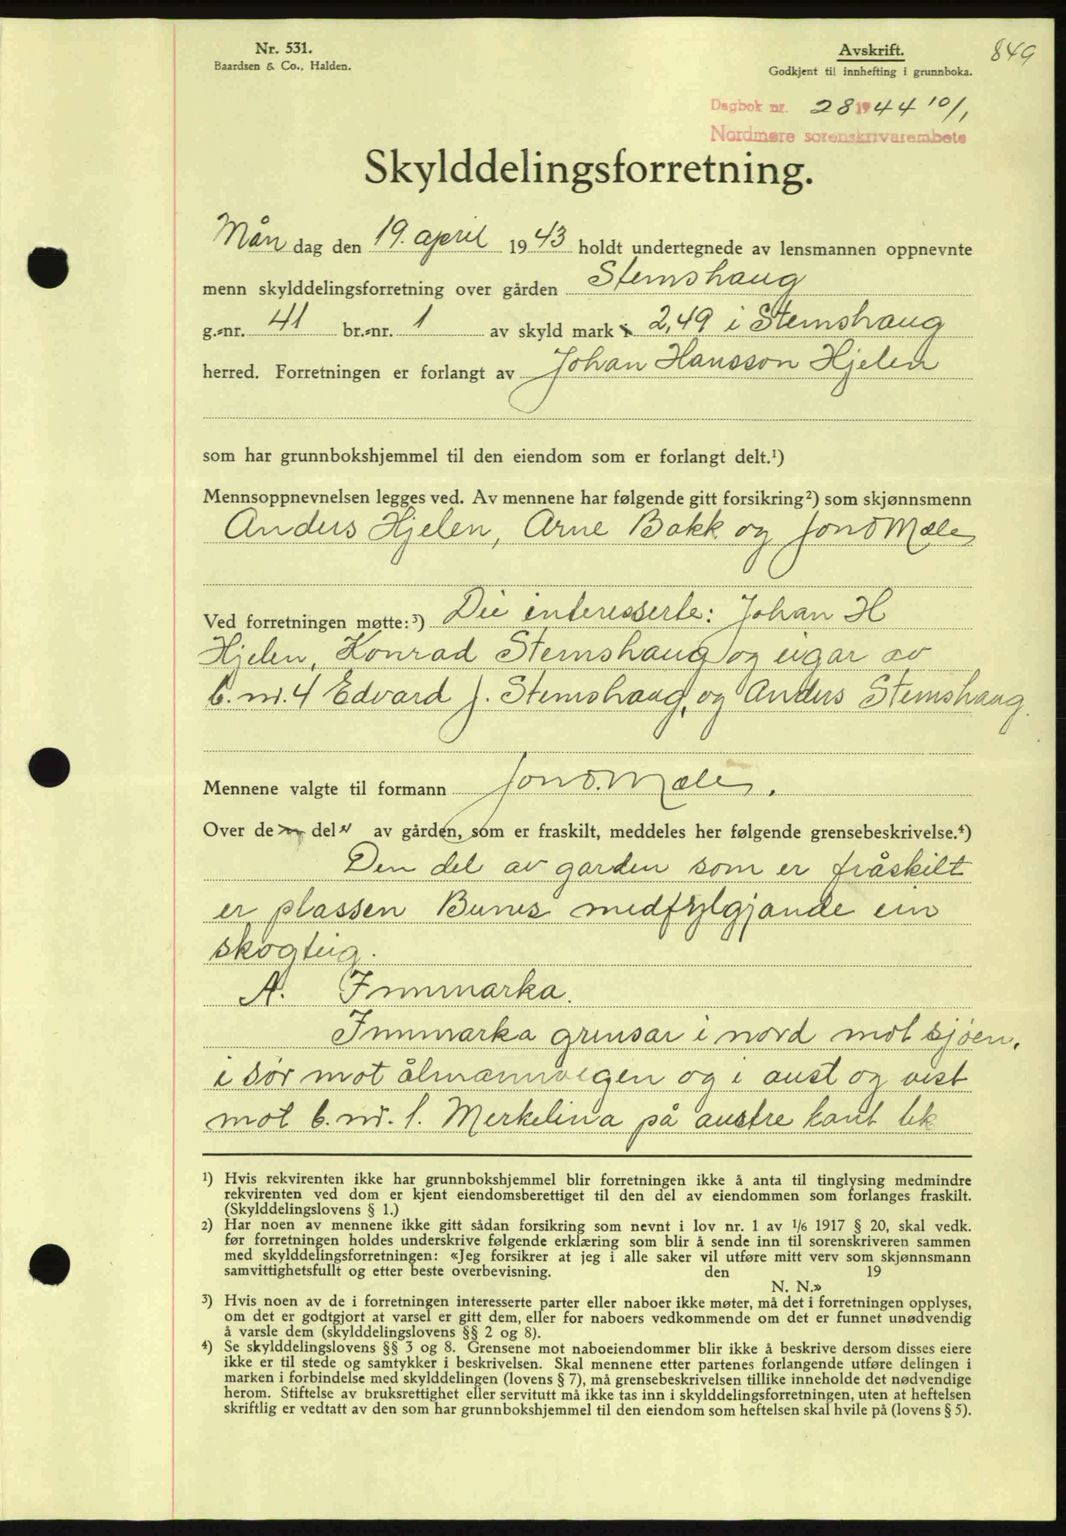 Nr. 531.
Baardsen & Co., Halden.
Avskrift.
Godkjent til innhefting i grunnboka.
849
Dagbok nr. 28 1944 10/1
Nordmøre sorenskrivarembete
Skylddelingsforretning.
Mån dag den 19. april 1943 holdt undertegnede av lensmannen oppnevnte
menn skylddelingsforretning over gården Stemshaug
g.-nr. 41 br.-nr. 1 av skyld mark 2,49 i Stemshaug
herred. Forretningen er forlangt av Johan Hansson Hjelen
som har grunnbokshjemmel til den eiendom som er forlangt delt.¹)
Mennsoppnevnelsen legges ved. Av mennene har følgende gitt forsikring²) som skjønnsmenn
Anders Hjelen, Arne Bakk og Jon O Mæle
Ved forretningen møtte:³) Dei interesserte: Johan H
Hjelen, Konrad Stemshaug og eigar av
b.nr. 4 Edvard J. Stemshaug, og Anders Stemshaug.
Mennene valgte til formann Jon O. Mæle.
Over de del av gården, som er fraskilt, meddeles her følgende grensebeskrivelse.⁴)
Den del av garden som er fråskilt
er plassen Bunes medfylgjande ein
skogteig.
A. Innmarka.
Innmarka grensar i nord mot sjøen,
i sør mot ålmannvegen og i aust og vest
mot b.nr. 1. Merkelina på austre kant tek
¹) Hvis rekvirenten ikke har grunnbokshjemmel blir forretningen ikke å anta til tinglysing medmindre
rekvirenten ved dom er kjent eiendomsberettiget til den del av eiendommen som forlanges fraskilt.
(Skylddelingslovens § 1.)
²) Har noen av mennene ikke gitt sådan forsikring som nevnt i lov nr. 1 av 1/6 1917 § 20, skal vedk.
før forretningen holdes underskrive følgende erklæring som blir å sende inn til sorenskriveren sammen
med skylddelingsforretningen: «Jeg forsikrer at jeg i alle saker vil utføre mitt verv som skjønnsmann
samvittighetsfullt og etter beste overbevisning. den 19
N. N.»
³) Hvis noen av de i forretningen interesserte parter eller naboer ikke møter, må det i forretningen opplyses,
om det er godtgjort at varsel er gitt dem, eller for naboers vedkommende om det er funnet unødvendig
å varsle dem (skylddelingslovens §§ 2 og 8).
⁴) Se skylddelingslovens §§ 3 og 8. Grensene mot naboeiendommer blir ikke å beskrive dersom disses eiere
ikke er til stede og samtykker i beskrivelsen. Skal mennene etter partenes forlangende utføre delingen i
marken i forbindelse med skylddelingen (lovens § 7), må grensebeskrivelsen tillike inneholde det nødvendige
herom. Stiftelse av bruksrettighet eller servitutt må ikke tas inn i skylddelingsforretningen, uten at heftelsen
skriftlig er vedtatt av den som har grunnbokshjemmel til den eiendom som heftelsen skal hvile på (lovens § 5).